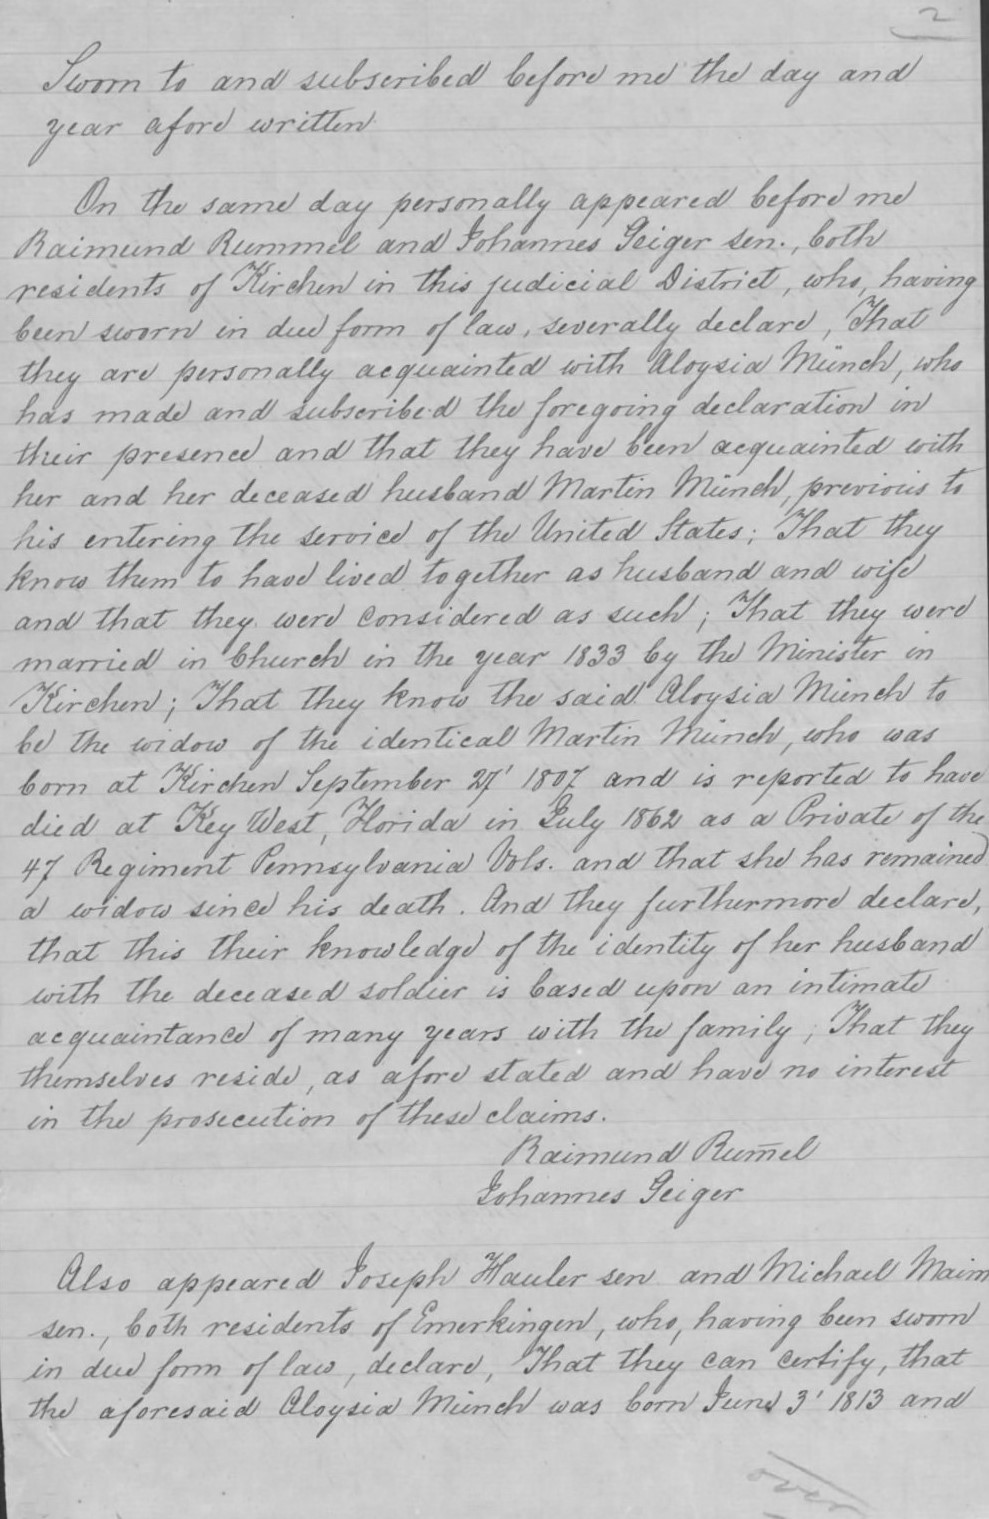 2
Sworn to and subscribed before me the day and
year afore written
On the same day personally appeared before me
Raimund Rummel and Johannes Geiger sen., both
residents of Kirchen in this judicial District, who, having
been sworn in due form of law, severally declare, That
they are personally acquainted with Aloysia Münch, who
has made and subscribed the foregoing declaration in
their presence and that they have been acquainted with
her and her deceased husband Martin Münch, previous to
his entering the service of the United States; That they
know them to have lived together as husband and wife
and that they were considered as such; That they were
married in Church in the year 1833 by the Minister in
Kirchen; That they know the said Aloysia Münch to
be the widow of the identical Martin Münch, who was
born at Kirchen September 27' 1807 and is reported to have
died at Key West, Florida in July 1862 as a Private of the
47 Regiment Pennsylvania Vols. and that she has remained
a widow since his death. And they furthermore declare,
that this their knowledge of the identity of her husband
with the deceased soldier is based upon an intimate
acquaintance of many years with the family; That they
themselves reside, as afore stated and have no interest
in the prosecution of these claims.
Raimund Rum̄el
Johannes Geiger
Also appeared Joseph Hauler sen. and Michael Maim
sen., both residents of Emerkingen, who, having been sworn
in due form of law, declare, That they can certify, that
the aforesaid Aloysia Münch was born June 3' 1813 and
over